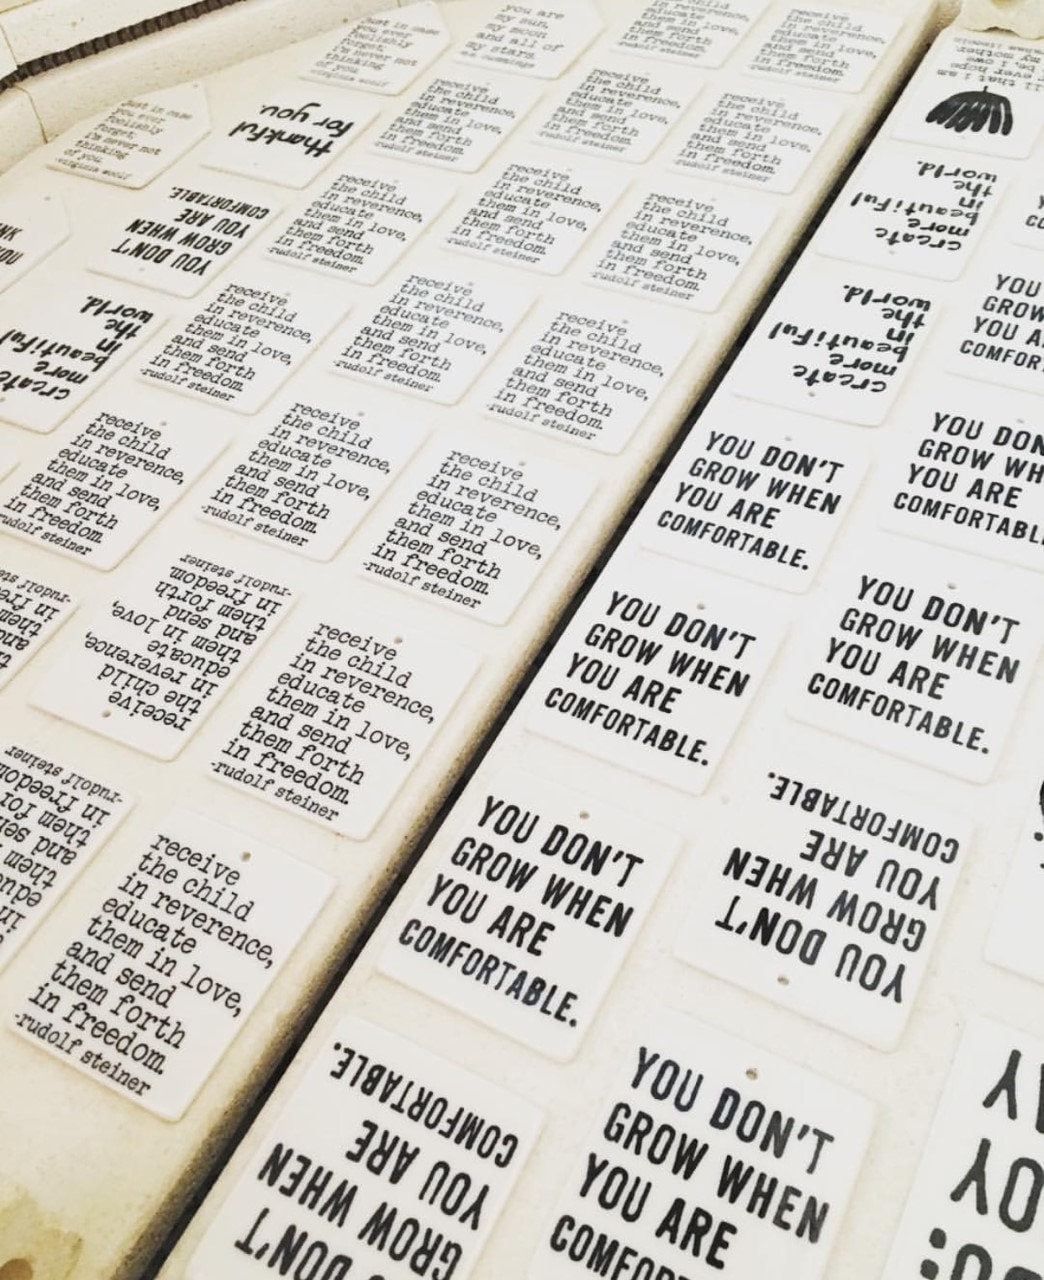 just in case
you ever
foolishly
forget,
i'm never not
thinking
of you
-virginia woolf
you are
my sun,
my moon
and all of
my stars.
in reverence,
educate
them in love,
and send
them forth
in freedom.
receive
the child
in reverence,
educate
them in love,
and send
them forth
in freedom.
just in case
you ever
foolishly
forget,
i'm never not
thinking
of you
-virginia woolf
thankful
for you.
receive
the child
in reverence,
educate
them in love,
and send
them forth
in freedom.
-rudolf steiner
receive
the child
in reverence,
educate
them in love,
and send
them forth
in freedom.
-rudolf steiner
receive
the child
in reverence,
educate
them in love,
and send
them forth
in freedom.
-rudolf steiner
YOU DON'T
GROW WHEN
YOU ARE
COMFORTABLE.
receive
the child
in reverence,
educate
them in love,
and send
them forth
in freedom.
-rudolf steiner
receive
the child
in reverence,
educate
them in love,
and send
them forth
in freedom.
-rudolf steiner
receive
the child
in reverence,
educate
them in love,
and send
them forth
in freedom.
-rudolf steiner
create
more
beautiful
in
the
world.
receive
the child
in reverence,
educate
them in love,
and send
them forth
in freedom.
-rudolf steiner
receive
the child
in reverence,
educate
them in love,
and send
them forth
in freedom.
-rudolf steiner
receive
the child
in reverence,
educate
them in love,
and send
them forth
in freedom.
-rudolf steiner
receive
the child
in reverence,
educate
them in love,
and send
them forth
in freedom.
-rudolf steiner
receive
the child
in reverence,
educate
them in love,
and send
them forth
in freedom.
-rudolf steiner
receive
the child
in reverence,
educate
them in love,
and send
them forth
in freedom.
-rudolf steiner
receive
the child
in reverence,
educate
them in love,
and send
them forth
in freedom.
-rudolf steiner
receive
the child
in reverence,
educate
them in love,
and send
them forth
in freedom.
-rudolf steiner
them
and sen
them for
in freedom
-rudolf steiner
receive
the child
in reverence,
educate
them in love,
and send
them forth
in freedom.
-rudolf steiner
create
more
beautiful
in
the
world.
create
more
beautiful
in
the
world.
YOU
GROW
YOU A
COMFOR
YOU DON'T
GROW WHEN
YOU ARE
COMFORTABLE.
YOU DON
GROW WH
YOU ARE
COMFORTABL
YOU DON'T
GROW WHEN
YOU ARE
COMFORTABLE.
YOU DON'T
GROW WHEN
YOU ARE
COMFORTABLE.
YOU DON'T
GROW WHEN
YOU ARE
COMFORTABLE.
YOU DON'T
GROW WHEN
YOU ARE
COMFORTABLE.
DON'T
GROW WHEN
YOU ARE
COMFORTABLE.
YOU DON'T
GROW WHEN
YOU ARE
COMFO